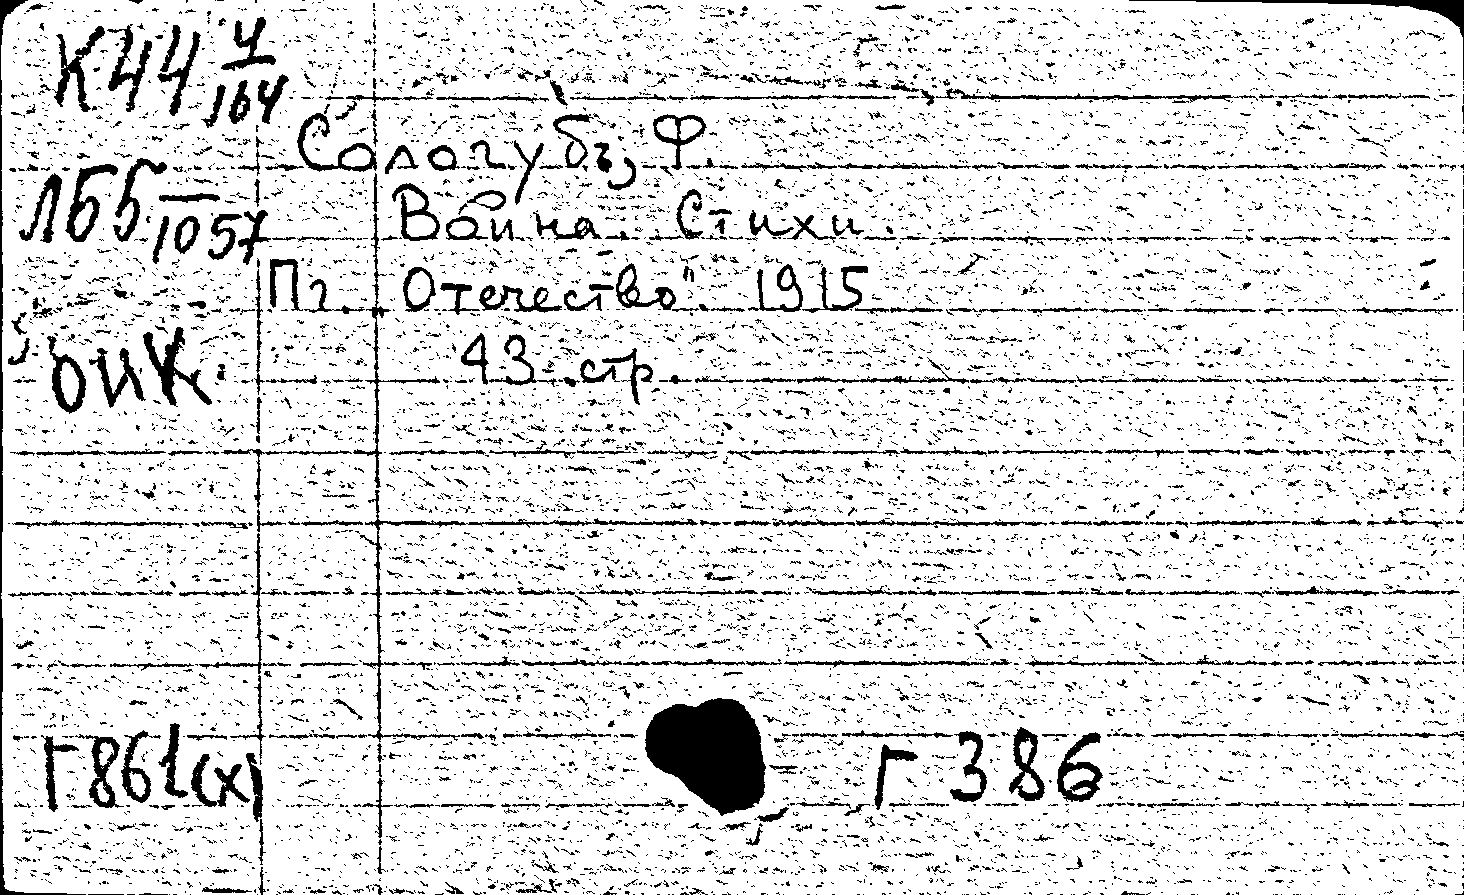 К44 4/164
Сологубъ, Ф.
ЛБ5 –/1057
Война. Стихи.
Пг. Отечество". 1915
43 стр.
ОИК.
Г861(х)
Г 386